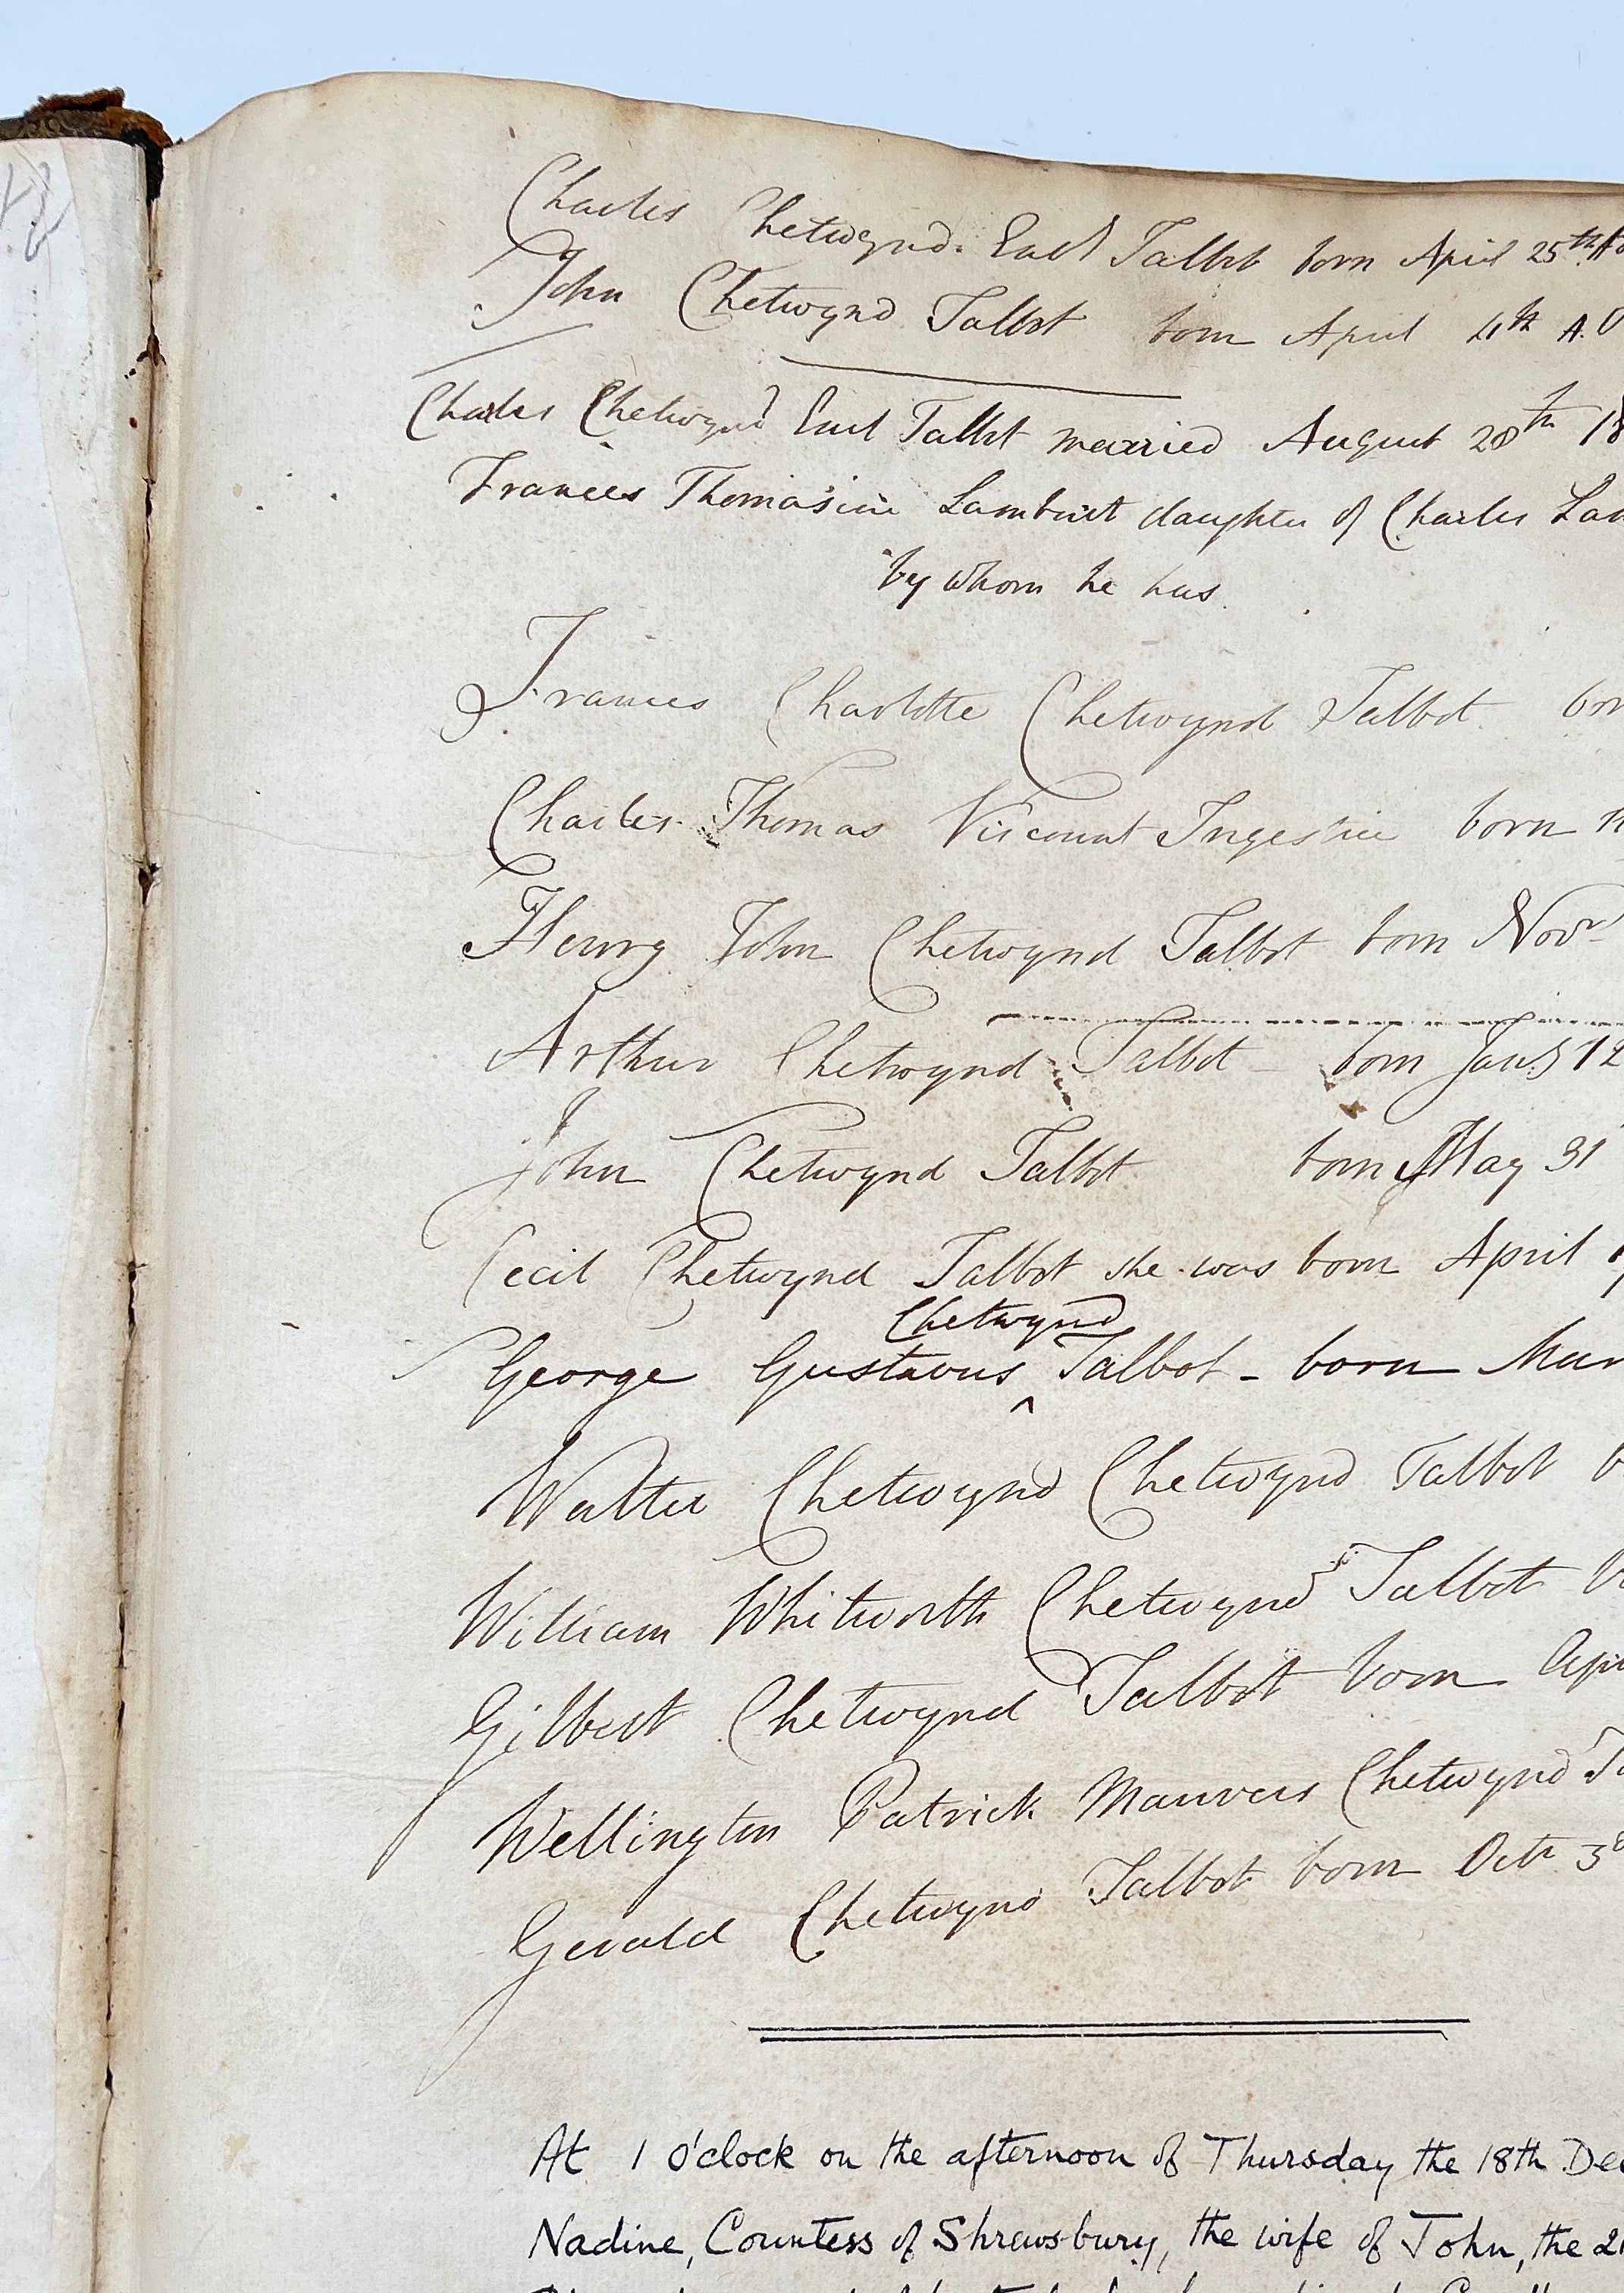 Charles Chetwynd. Earl Talbot born April 25th
John Chetwynd Talbot born April 4th A.D
Charles Chetwynd Earl Talbot married August 28th 18
Frances Thomasine Lambert daughter of Charles Lam
by whom he has.
Frances Charlotte Chetwynd Talbot bor
Charles Thomas Viscount Ingestrie born
Henry John Chetwynd Talbot born Novr
Arthur Chetwynd Talbot - born Jany 12
John Chetwynd Talbot born May 31
Cecil Chetwynd Talbot she was born April
Chetwynd
George Gustavus ^ Talbot - born Mar
Walter Chetwynd Chetwynd Talbot b
William Whitworth Chetwynd Talbot b
Gilbert Chetwynd Talbot born Apri
Wellington Patrick Manvers Chetwynd Ta
Gerald Chetwynd Talbot born Octr 3
At 1 O'clock on the afternoon of Thursday the 18th Dec
Nadine, Countess of Shrewsbury, the wife of John, the 21